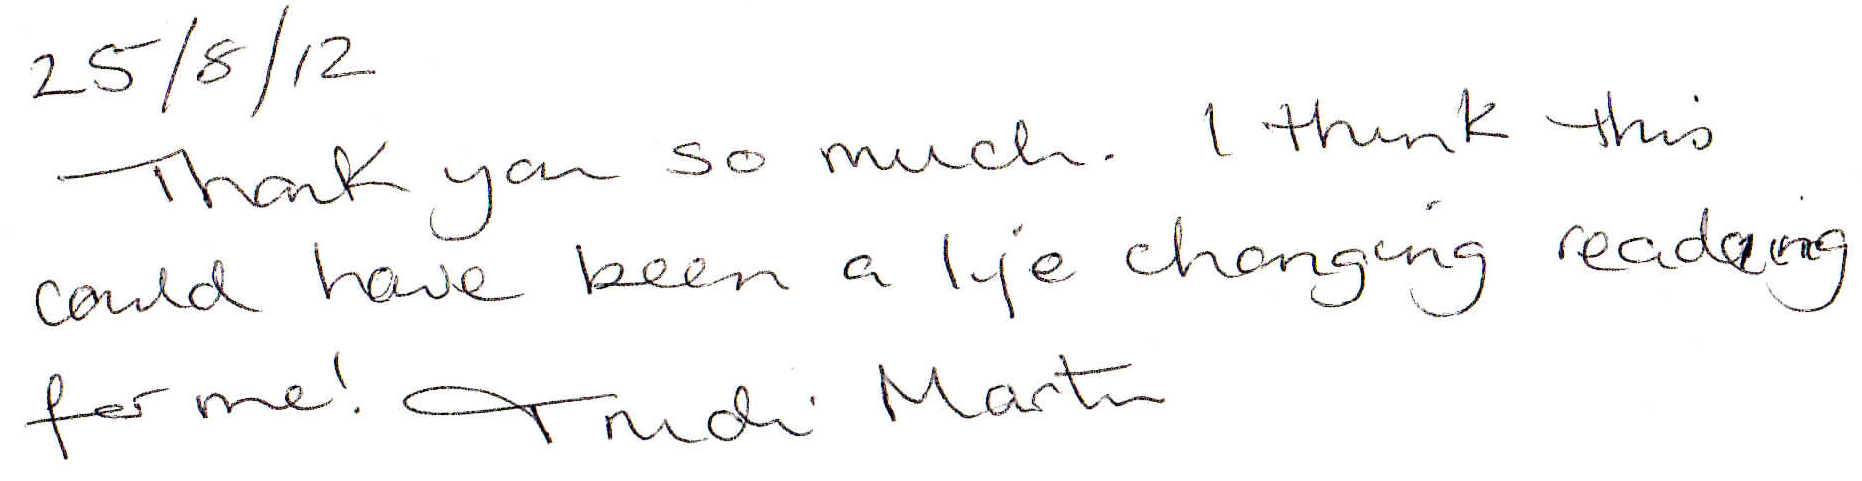 25/8/12
Thank you so much. I think this
could have been a life changing reading
for me! Trudi Martin